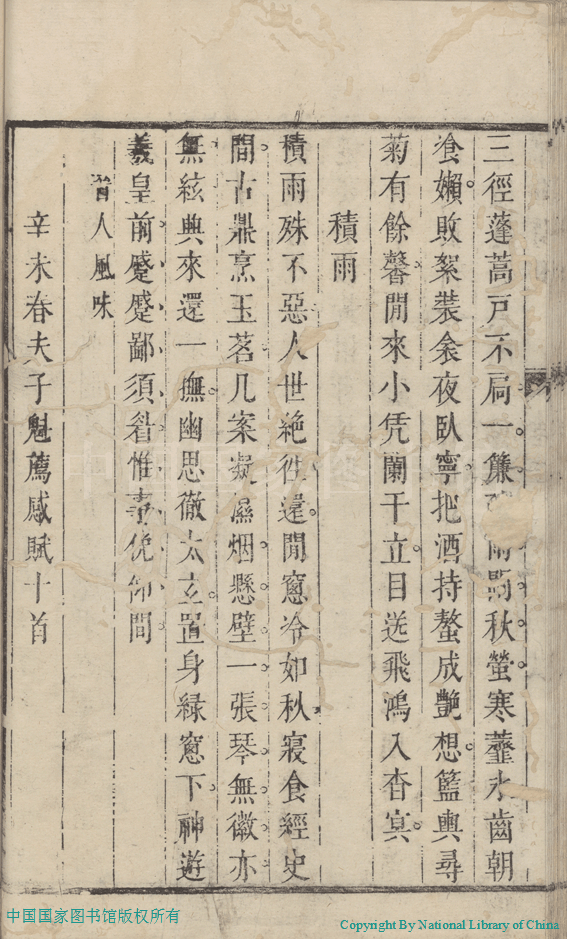 三徑蓬蒿戸不扃一簾 雨點秋螢寒虀水齒朝
飡嬾敗絮裝衾夜臥寧把酒持螯成艷想籃輿尋
菊有餘馨閒來小凭闌干立目送飛鴻入杳冥
積雨
積雨殊不惡人世絶徃還閒窻冷如秋寢食經史
間古鼎烹玉茗几案凝濕烟懸壁一張琴無徽亦
無絃興來還一撫幽思徹太玄置身緑窻下神遊
羲皇前蹙蹙鄙須眉惟 俛仰間
晉人風味
辛未春夫子魁薦感賦十首
中国国家图书馆版权所有
Copyright By National Library of China